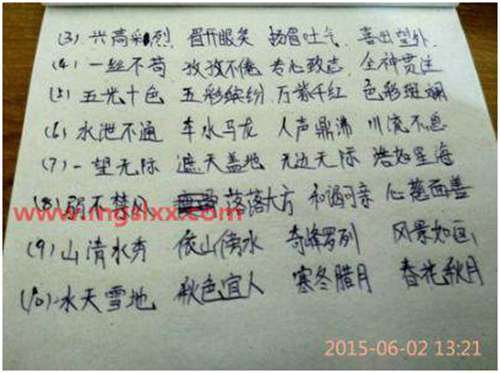 (3) 兴高彩烈 眉开眼笑 扬眉吐气 喜出望外
(4) 一丝不苟 孜孜不倦 专心致志 全神贯注
(5) 五光十色 五彩缤纷 万紫千红 色彩斑斓
(6) 水泄不通 车水马龙 人声鼎沸 川流不息
(7) 一望无际 遮天盖地 无边无际 浩如星海
(8) 弱不禁风 落落大方 和可亲 心慈面善
www.mgslxx.com
(9) 山清水秀 依山傍水 奇峰罗列 风景如画
(10) 水天雪地 秋色宜人 寒冬腊月 春花秋月
2015-06-02 13:21